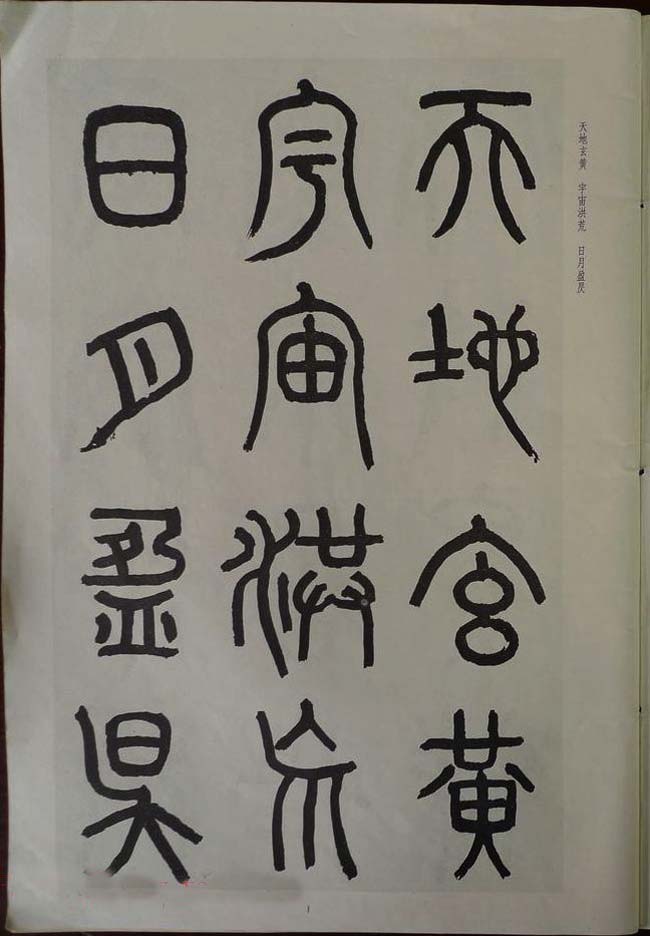 天地玄黄 宇宙洪荒 日月盈昃
天地玄黄
宇宙洪荒
日月盈昃
1